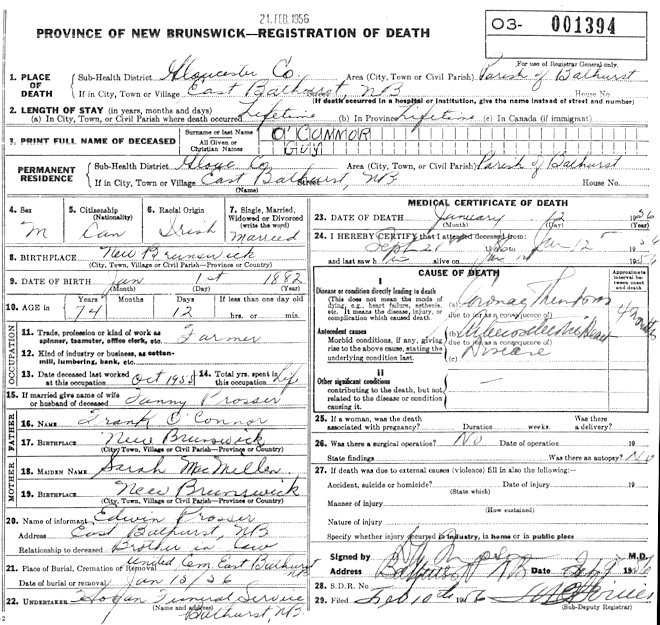 21 FEB 1956
PROVINCE OF NEW BRUNSWICK—REGISTRATION OF DEATH
03- 001394
For use of Registrar General only.
1. PLACE OF DEATH
Sub-Health District Gloucester Co Area (City, Town or Civil Parish) Parish of Bathurst
If in City, Town or Village East Bathurst, NB House No.
(If death occurred in a hospital or institution, give the name instead of street and number)
2. LENGTH OF STAY (in years, months and days)
(a) In City, Town, or Civil Parish where death occurred Lifetime (b) In Province Lifetime (c) In Canada (if immigrant)
3. PRINT FULL NAME OF DECEASED
Surname or last Name O'CONNOR
All Given or Christian Names GUY
PERMANENT RESIDENCE
Sub-Health District Glouc Co Area (City, Town, or Civil Parish) Parish of Bathurst
If in City, Town or Village East Bathurst, NB Street House No.
(Name)
4. Sex M
5. Citizenship (Nationality) Can
6. Racial Origin Irish
7. Single, Married, Widowed or Divorced (write the word) Married
8. BIRTHPLACE New Brunswick
(City, Town, Village or Civil Parish—Province or Country)
9. DATE OF BIRTH Jan 1st 1882
(Month) (Day) (Year)
10. AGE in Years 74 Months Days 12 If less than one day old hrs. or min.
OCCUPATION
11. Trade, profession or kind of work as spinner, teamster, office clerk, etc. Farmer
12. Kind of industry or business, as cotton-mill, lumbering, bank, etc.
13. Date deceased last worked at this occupation Oct 1955 14. Total yrs. spent in this occupation Life
15. If married give name of wife or husband of deceased Fanny Prosser
FATHER
16. NAME Frank O'Connor
17. BIRTHPLACE New Brunswick
(City, Town, Village or Civil Parish—Province or Country)
MOTHER
18. MAIDEN NAME Sarah MacMillen
19. BIRTHPLACE New Brunswick
(City, Town, Village or Civil Parish—Province or Country)
20. Name of informant Edwin Prosser
Address East Bathurst, NB
Relationship to deceased Brother in law
21. Place of Burial, Cremation or Removal United Cem East Bathurst NB
Date of burial or removal Jan 15/56
22. UNDERTAKER Hogan Funeral Service
(Name and address) Bathurst, NB.
MEDICAL CERTIFICATE OF DEATH
23. DATE OF DEATH January 12 1956
(Month) (Day) (Year)
24. I HEREBY CERTIFY that I attended deceased from
Sept 21 to Jan 12 1956
and last saw h alive on Jan 1956
CAUSE OF DEATH
Approximate interval between onset and death
I
Disease or condition directly leading to death
(This does not mean the mode of dying, e.g., heart failure, asthenia, etc. It means the disease, injury, or complication which caused death.
(a) Coronary Thrombosis
due to (or as a consequence of)
Antecedent causes
Morbid conditions, if any, giving rise to the above cause, stating the underlying condition last.
(b) Heart
due to (or as a consequence of)
(c) Disease
II
Other significant conditions
contributing to the death, but not related to the disease or condition causing it. —
25. If a woman, was the death associated with pregnancy? Duration weeks. Was there a delivery?
26. Was there a surgical operation? No Date of operation 19
State findings Was there an autopsy? No
27. If death was due to external causes (violence) fill in also the following:—
Accident, suicide or homicide? Date of injury 19
(State which)
Manner of injury
(How sustained)
Nature of injury
Specify whether injury occurred in industry, in home or in public place
Signed by M.D.
Address Bathurst NB Date 1956
28. S.D.R. No.
29. Filed Feb 10th 1956
(Sub-Deputy Registrar)